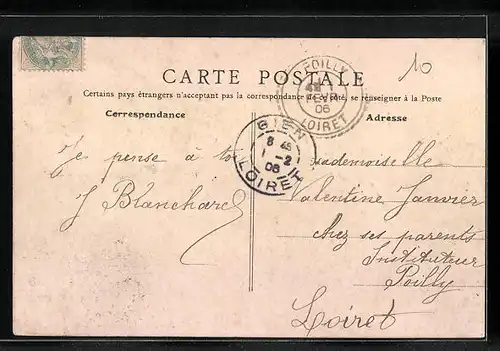 CARTE POSTALE
Certains pays étrangers n'acceptant pas la correspondance de ce côté, se renseigner à la Poste
Correspondance
Adresse
10
POILLY
FEVR
06
LOIRET
GIEN
8 45
1 - 2
06
LOIRET
Je pense à toi
J Blanchard
Mademoiselle
Valentine Janvier
Chez ses parents
Instituteur
Poilly
Loiret